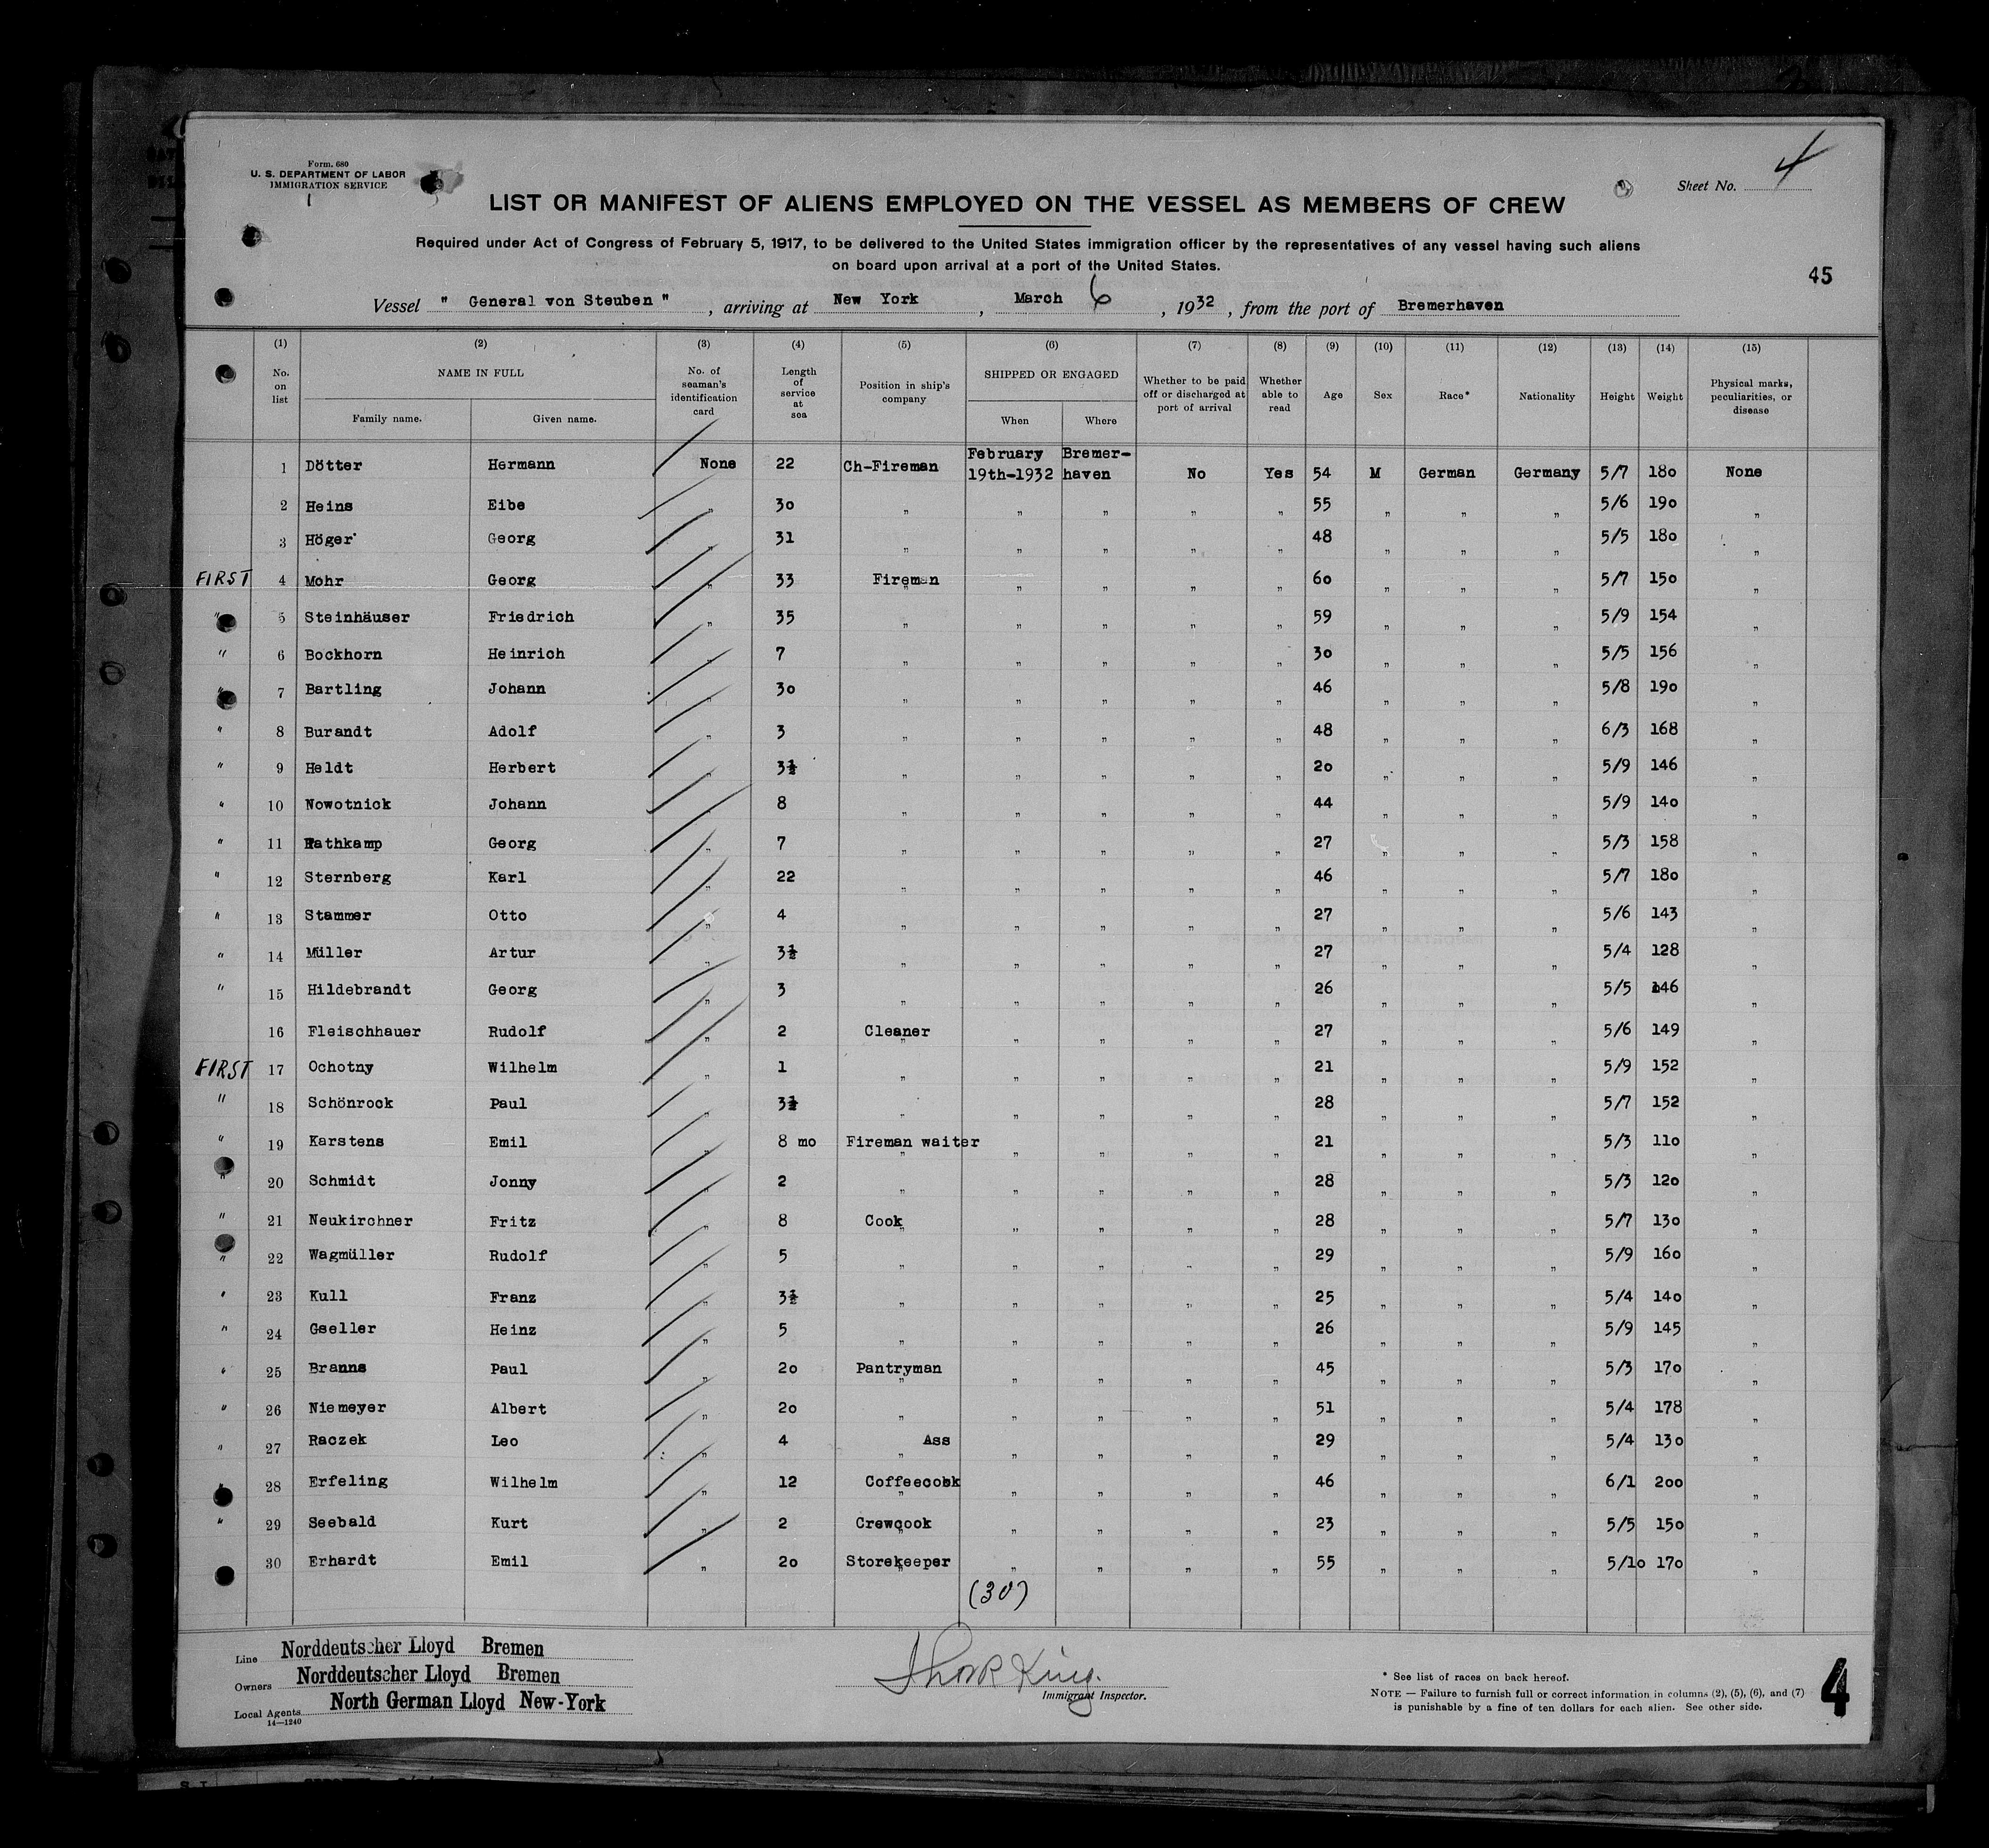 Form. 680
U. S. DEPARTMENT OF LABOR
IMMIGRATION SERVICE
Sheet No. 4
LIST OR MANIFEST OF ALIENS EMPLOYED ON THE VESSEL AS MEMBERS OF CREW
Required under Act of Congress of February 5, 1917, to be delivered to the United States immigration officer by the representatives of any vessel having such aliens
on board upon arrival at a port of the United States.
45
Vessel " General von Steuben " , arriving at New York , March 6 , 1932 , from the port of Bremerhaven
(1) (2) (3) (4) (5) (6) (7) (8) (9) (10) (11) (12) (13) (14) (15)
No. on list NAME IN FULL Family name. Given name. No. of seaman's identification card Length of service at sea Position in ship's company SHIPPED OR ENGAGED When Where Whether to be paid off or discharged at port of arrival Whether able to read Age Sex Race* Nationality Height Weight Physical marks, peculiarities, or disease
1 Dötter Hermann None 22 Ch-Fireman February 19th-1932 Bremer-haven No Yes 54 M German Germany 5/7 180 None
2 Heins Eibe " 30 " " " " " 55 " " " 5/6 190 "
3 Höger Georg " 31 " " " " " 48 " " " 5/5 180 "
FIRST 4 Mohr Georg " 33 Fireman " " " " 60 " " " 5/7 150 "
" 5 Steinhäuser Friedrich " 35 " " " " " 59 " " " 5/9 154 "
" 6 Bockhorn Heinrich " 7 " " " " " 30 " " " 5/5 156 "
" 7 Bartling Johann " 30 " " " " " 46 " " " 5/8 190 "
" 8 Burandt Adolf " 3 " " " " " 48 " " " 6/3 168 "
" 9 Heldt Herbert " 3½ " " " " " 20 " " " 5/9 146 "
" 10 Nowotnick Johann " 8 " " " " " 44 " " " 5/9 140 "
" 11 Rathkamp Georg " 7 " " " " " 27 " " " 5/3 158 "
" 12 Sternberg Karl " 22 " " " " " 46 " " " 5/7 180 "
" 13 Stammer Otto " 4 " " " " " 27 " " " 5/6 143 "
" 14 Müller Artur " 3½ " " " " " 27 " " " 5/4 128 "
" 15 Hildebrandt Georg " 3 " " " " " 26 " " " 5/5 146 "
16 Fleischhauer Rudolf " 2 Cleaner " " " " 27 " " " 5/6 149 "
FIRST 17 Ochotny Wilhelm " 1 " " " " " 21 " " " 5/9 152 "
" 18 Schönrock Paul " 3½ " " " " " 28 " " " 5/7 152 "
" 19 Karstens Emil " 8 mo Fireman waiter " " " " 21 " " " 5/3 110 "
" 20 Schmidt Jonny " 2 " " " " " 28 " " " 5/3 120 "
" 21 Neukirchner Fritz " 8 Cook " " " " 28 " " " 5/7 130 "
" 22 Wagmüller Rudolf " 5 " " " " " 29 " " " 5/9 160 "
" 23 Kull Franz " 3½ " " " " " 25 " " " 5/4 140 "
" 24 Gseller Heinz " 5 " " " " " 26 " " " 5/9 145 "
" 25 Branns Paul " 20 Pantryman " " " " 45 " " " 5/3 170 "
" 26 Niemeyer Albert " 20 " " " " " 51 " " " 5/4 178 "
" 27 Raczek Leo " 4 " Ass " " " " 29 " " " 5/4 130 "
" 28 Erfeling Wilhelm " 12 Coffeecook " " " " 46 " " " 6/1 200 "
" 29 Seebald Kurt " 2 Crewcook " " " " 23 " " " 5/5 150 "
30 Erhardt Emil " 20 Storekeeper " " " " 55 " " " 5/10 170 "
(30)
Line Norddeutscher Lloyd Bremen
Owners Norddeutscher Lloyd Bremen
Local Agents North German Lloyd New-York
14—1240
King.
Immigrant Inspector.
* See list of races on back hereof.
NOTE — Failure to furnish full or correct information in columns (2), (5), (6), and (7)
is punishable by a fine of ten dollars for each alien. See other side.
4